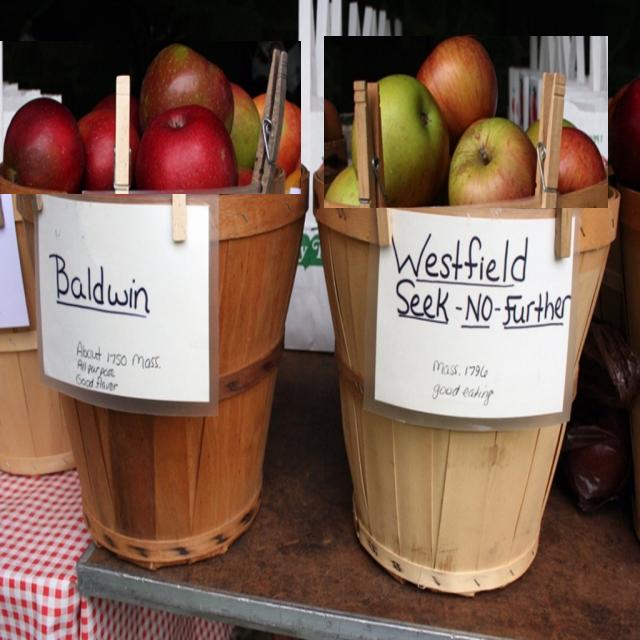 Baldwin
About 1750 Mass.
All purpose
Good flavor
Westfield
Seek-No-Further
Mass. 1796
good eating